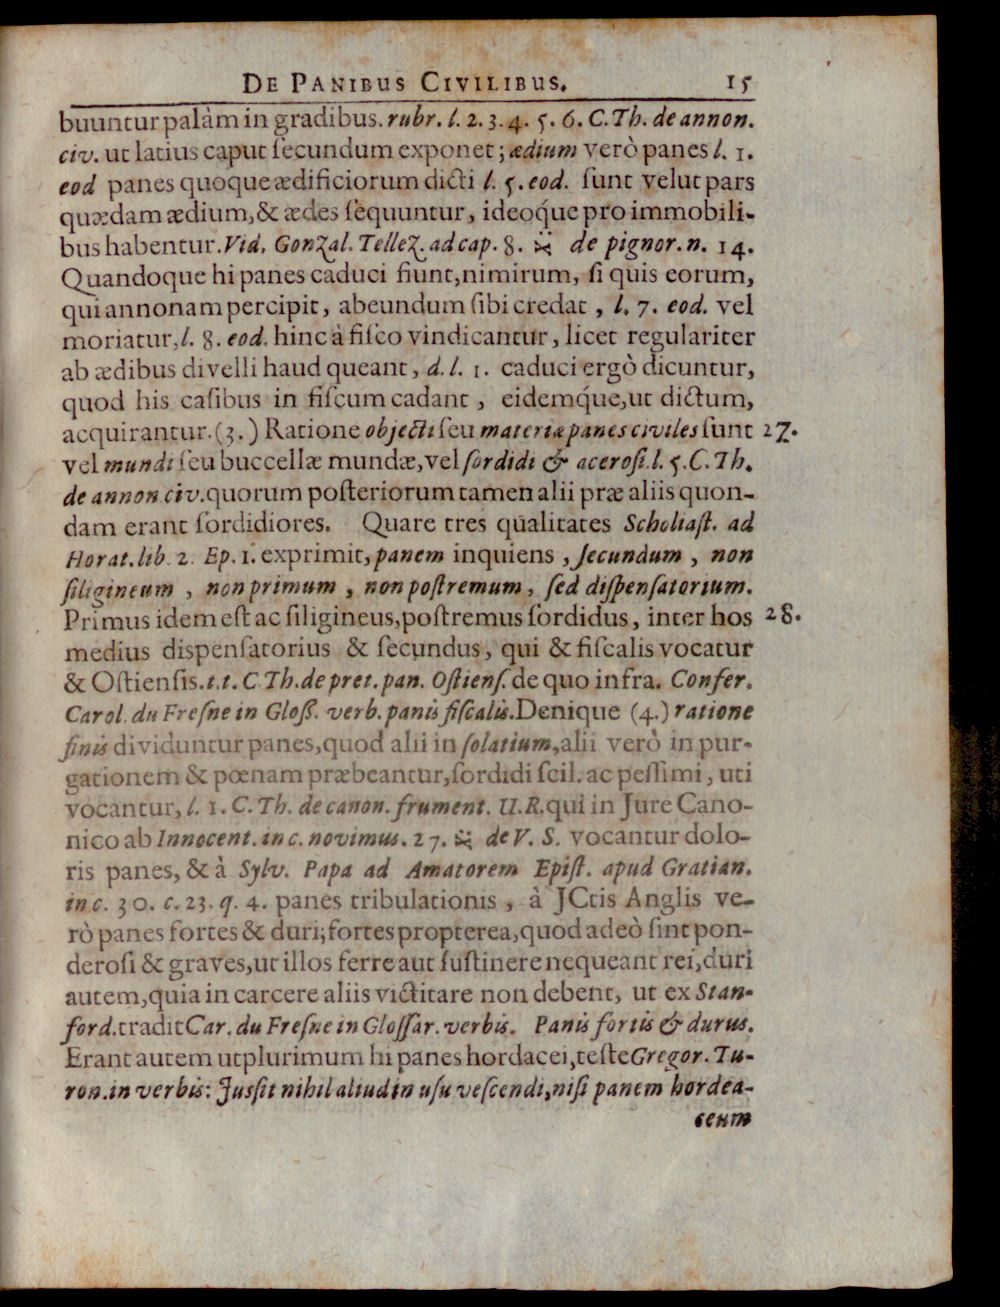 DE PANIBUS CIVILIBUS. 15
buuntur palàm in gradibus. rubr. l. 2. 3. 4. 5. 6. C. Th. de annon.
civ. ut latius caput ſecundum exponet; ædium verò panes l. 1.
eod panes quoque ædificiorum dicti l. 5. eod. ſunt velut pars
quædam ædium, & ædes ſequuntur, ideoq́ue pro immobili-
bus habentur. Vid. Gonzal. Tellez. ad cap. 8. de pignor. n. 14.
Quandoque hi panes caduci fiunt, nimirum, ſi quis eorum,
qui annonam percipit, abeundum ſibi credat, l. 7. eod. vel
moriatur, l. 8. eod. hinc à fiſco vindicantur, licet regulariter
ab ædibus divelli haud queant, d. l. 1. caduci ergò dicuntur,
quod his caſibus in fiſcum cadant, eidemq́ue, ut dictum,
acquirantur. (3.) Ratione objecti ſeu materiæ panes civiles ſunt 27.
vel mundi ſeu buccellæ mundæ, vel ſordidi & aceroſi. l. 5. C. Th.
de annon civ. quorum poſteriorum tamen alii præ aliis quon-
dam erant ſordidiores. Quare tres qualitates Scholiaſt. ad
Horat. lib. 2. Ep. 1. exprimit, panem inquiens, ſecundum, non
ſiligineum, non primum, non poſtremum, ſed diſpenſatorium.
Primus idem eſt ac ſiligineus, poſtremus ſordidus, inter hos 28.
medius diſpenſatorius & ſecundus, qui & fiſcalis vocatur
& Oſtienſis. t. t. C. Th. de pret. pan. Oſtienſ. de quo infra. Confer.
Carol. du Freſne in Gloß. verb. panis fiſcalis. Denique (4.) ratione
finis dividuntur panes, quod alii in ſolatium, alii verò in pur-
gationem & pœnam præbeantur, ſordidi ſcil. ac peſſimi, uti
vocantur, l. 1. C. Th. de canon. frument. U. R. qui in Jure Cano-
nico ab Innocent. in c. novimus. 27. de V. S. vocantur dolo-
ris panes, & à Sylv. Papa ad Amatorem Epiſt. apud Gratian.
in c. 30. c. 23. q. 4. panes tribulationis, à JCtis Anglis ve-
rò panes fortes & duri; fortes propterea, quod adeò ſint pon-
deroſi & graves, ut illos ferre aut ſuſtinere nequeant rei, duri
autem, quia in carcere aliis victitare non debent, ut ex Stan-
ford. tradit Car. du Freſne in Gloſſar. verbis. Panis fortis & durus.
Erant autem utplurimum hi panes hordacei, teſte Gregor. Tu-
ron. in verbis: Juſſit nihil aliud in uſu veſcendi, niſi panem hordea-
ceum